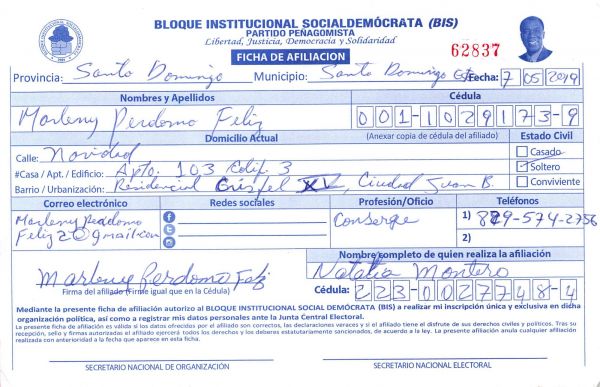 BLOQUE INSTITUCIONAL SOCIALDEMÓCRATA (BIS)
PARTIDO PEÑAGOMISTA
Libertad, Justicia, Democracia y Solidaridad
FICHA DE AFILIACION
62837
Provincia: Santo Domingo Municipio: Santo Domingo Este Fecha: 7 05 2019
Nombres y Apellidos Cédula
Marleny Perdomo Feliz 001-1029173-9
Domicilio Actual (Anexar copia de cédula del afiliado) Estado Civil
Calle: Navidad Casado
#Casa / Apt. / Edificio: Apto. 103 Edif. 3 Soltero
Barrio / Urbanización: Residencial XV, Ciudad Juan B. Conviviente
Correo electrónico Redes sociales Profesión/Oficio Teléfonos
Marleny Perdomo Conserge 1) 829-574-2756
Feliz20@gmail.com 2)
Nombre completo de quien realiza la afiliación
Marleny Perdomo Feliz Natalia Montero
Firma del afiliado (Firme igual que en la Cédula) Cédula: 223-0027748-4
Mediante la presente ficha de afiliación autorizo al BLOQUE INSTITUCIONAL SOCIAL DEMÓCRATA (BIS) a realizar mi inscripción única y exclusiva en dicha
organización política, así como a registrar mis datos personales ante la Junta Central Electoral.
La presente ficha de afiliación es válida si los datos ofrecidos por el afiliado son correctos, las declaraciones veraces y si el afiliado tiene el disfrute de sus derechos civiles y políticos. Tras su
recepción, sello y firmas autorizadas el afiliado ejercerá todos los derechos y los deberes estatutariamente sancionados, de acuerdo a la ley. La presente afiliación anula cualquier afiliación
realizada con anterioridad a la fecha que aparece en esta ficha.
SECRETARIO NACIONAL DE ORGANIZACIÓN SECRETARIO NACIONAL ELECTORAL